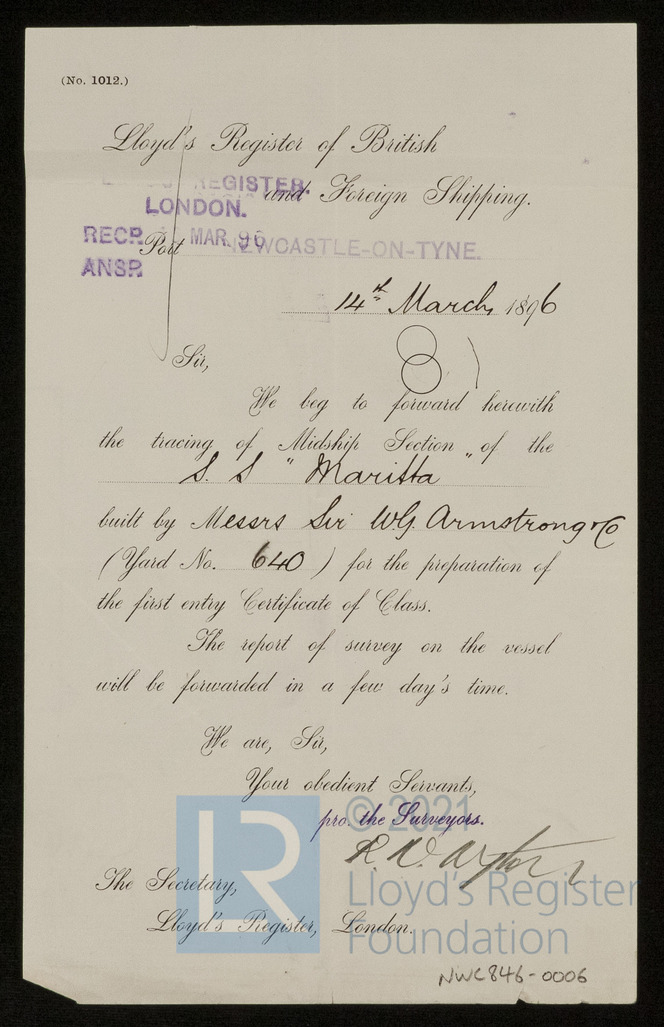 (No. 1012.)
Lloyd's Register of British
and Foreign Shipping.
REGISTER.
LONDON.
RECR. MAR. 96
ANSR
Port NEWCASTLE-ON-TYNE.
14th March, 1896
Sir,
We beg to forward herewith
the tracing of Midship Section „ of the
S. S " Maritta
built by Messrs Sir W.G. Armstrong & Co
(Yard No. 640) for the preparation of
the first entry Certificate of Class.
The report of survey on the vessel
will be forwarded in a few day's time.
We are, Sir,
Your obedient Servants,
© 2021
pro. the Surveyors.
The Secretary,
LR
Lloyd's Register
Foundation
Lloyd's Register, London.
NWC846-0006